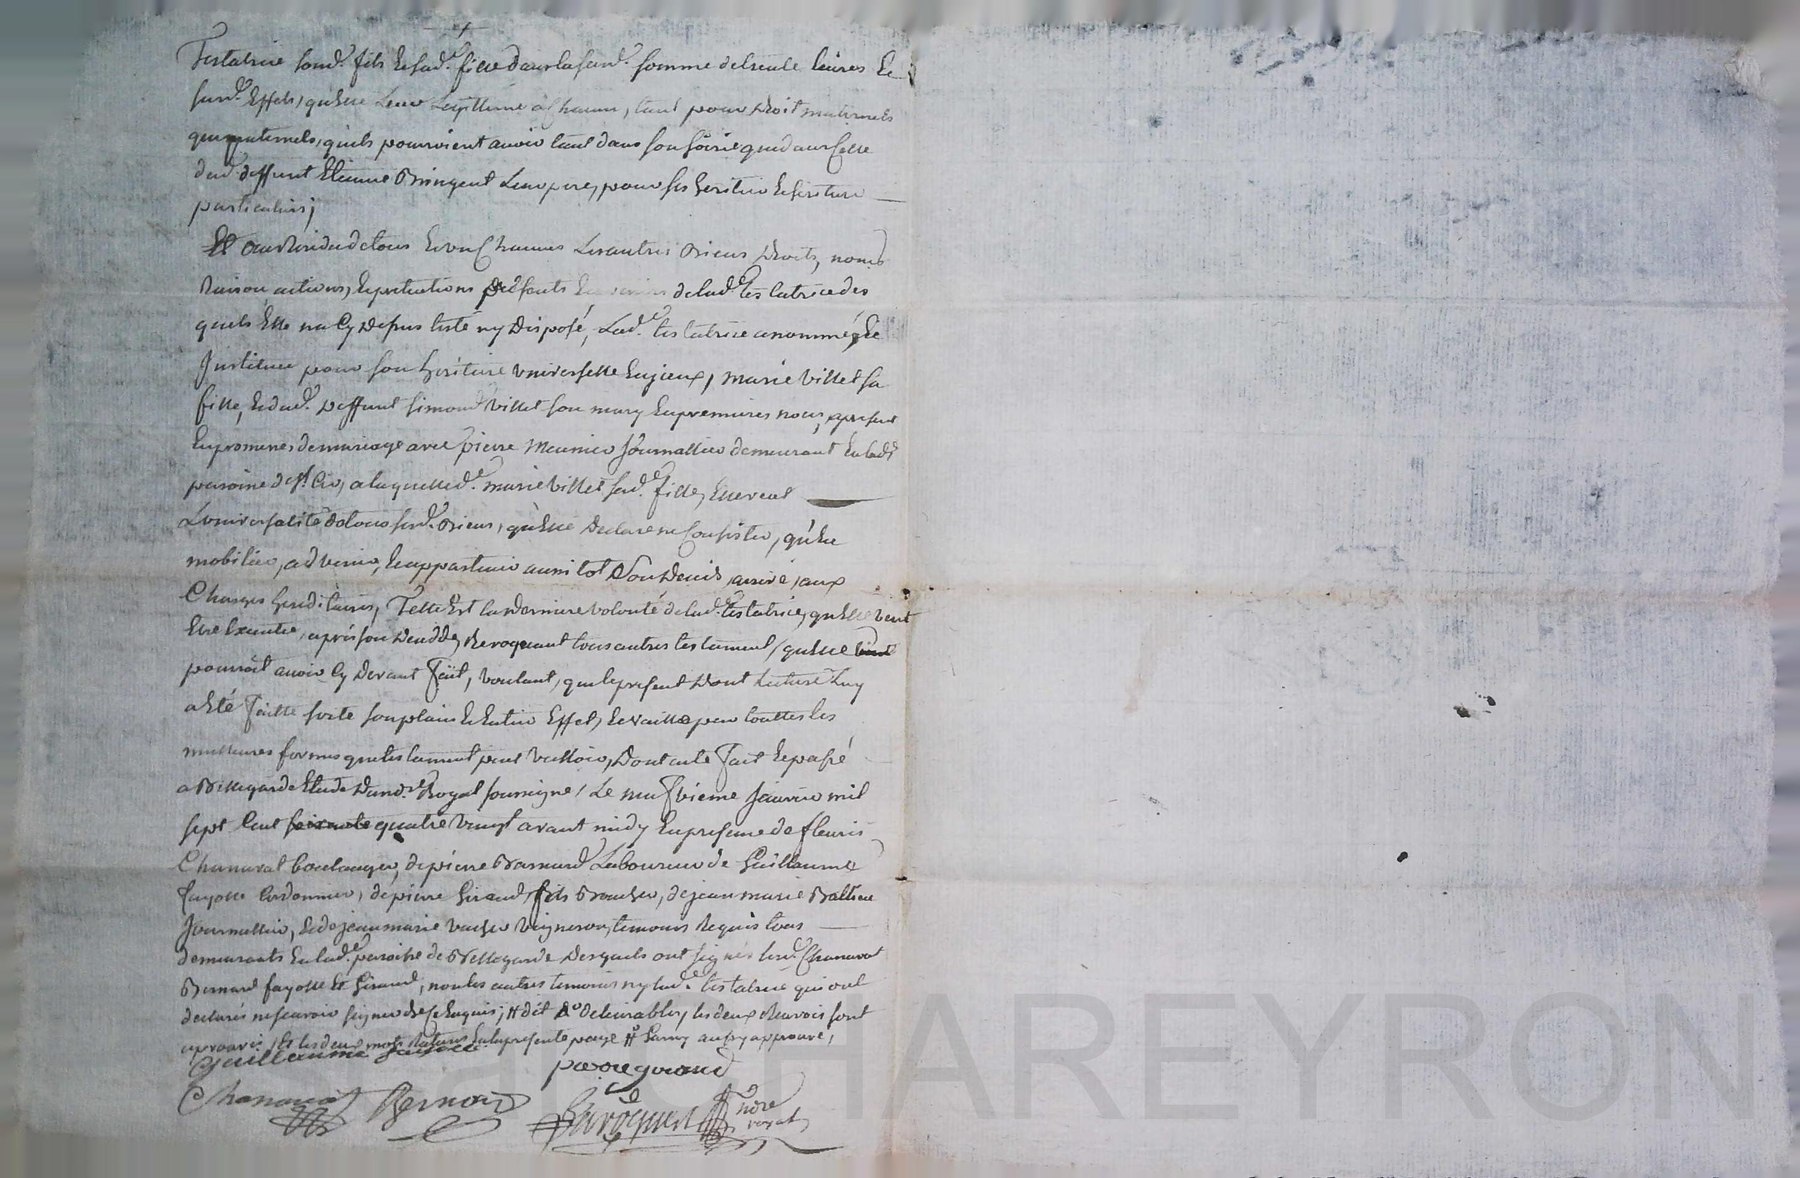 Testatrice sond. fils et sad.e fille dans la sus d. somme de trente livres et
susd. Effets, qu'elle Leur Legittime à Chacun, tant pour Droit maternels
que paternels, quils pourroient avoir tant dans son hoirie que dans Celle
dud. deffunt Etienne Bringent Leur pere, pour ses heritier et heritiere
particuliers;
Et au Residu de tous Et un Chacuns Les autres Biens Droits, noms
Raison actions, et pretentions presents et avenirs de lad.e testatrice des
quels Elle na Cy Depus testé ny Disposé, Lad.e testatrice a nommé, et
Institué pour son heritiere universelle Marie Villet sa
fille, et dud. Deffunt simond Villet son mary En premieres noces, apresent
En promesses de mariage avec pierre Meunier Journallier demeurant En lad.
paroisse de st. Cir, a laquelle d.e marie Villet sad.e fille, Elle veut
L'universalité de tous sesd. Biens, qu'elle Declare ne Consister, qu'en
mobilier, advenir, et appartenir aussitot son Deceds arrivé, aux
Charges hereditaires, Telle Est la derniere volonté de lad.e testatrice, qu'elle veut
Etre Executée, après son Deceds, Revoquant tous autres testament, qu'elle
pourroit avoir Cy Devant Fait, voulant, que le present Dont Lecture Luy
a Eté Faitte sorte son plain et Entier Effet, et vaille par touttes les
meilleures formes que testament peut valloir, Dont acte Fait et passé
a Bellegarde Etude Dund.re Royal soussigné, Le neufvieme Janvier mil
sept Cent soixante quatre vingt avant midy En presence de fleuris
Chanavat boulanger, de pierre Bernard Laboureur de Guillaume
Fayolle Cordonnier, de pierre Giraud fils Boucher, de jean marie
Journallier, et de jean marie Vacher Vigneron, temoins Requis tous
demeurants En lad.e paroisse de Bellegarde Desquels ont signés lesd. Chanavat
Bernard fayolle Et Giraud, non les autres temoins ny lad.e testatrice qui ont
declarés ne scavoir signer de ce Enquis; les deux Renvois sont
approuvés, Et les deux mots Raturés En la presente page aussy approuvé,
Guillaume fayolle
pierre giraud
Chanavat Bernard
ndre royal
CHAREYRON